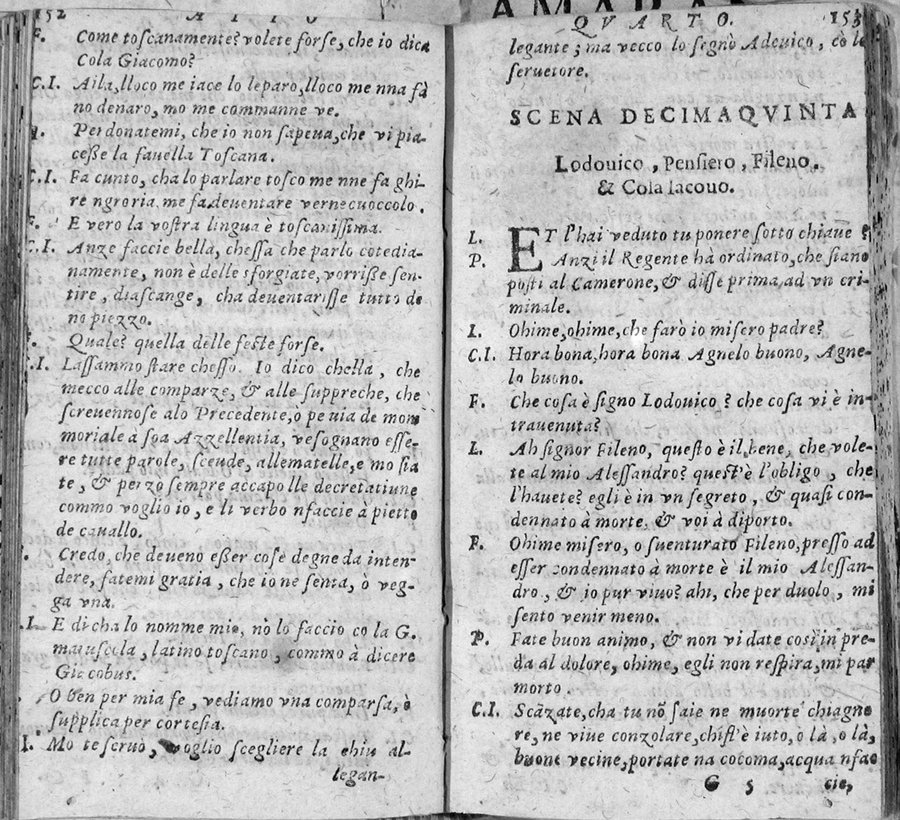 152 ATTO
F. Come toscanamente? volete forse, che io dica
Cola Giacomo?
C.I. Aila, lloco me iace lo leparo, lloco me nna fà
no denaro, mo me commanne ve.
Perdonatemi, che io non sapeua, che vi pia-
cesse la fauella Toscana.
C.I. Fa cunto, cha lo parlare tosco me nne fa ghi-
re ngroria, me fa deuentare vernecuoccolo.
F. E vero la vostra lingua è toscanissima.
C.I. Anze faccie bella, chessa che parlo cotedia-
namente, non è delle sforgiate, vorrisse sen-
tire, diascange, cha deuentarisse tutto de
no piezzo.
Quale? quella delle feste forse.
C.I. Lassammo stare chesso. Io dico chella, che
mecco alle comparze, & alle suppreche, che
screuennose alo Precedente, ò pe uia de mom
moriale à soa Azzellentia, vesognano esse-
re tutte parole, sceude, allematelle, e mo sta
te, & perzo sempre accapo lle decretatiune
commo voglio io, e li verbo nfaccie à pietto
de cauallo.
Credo, che deueno esser cose degne da inten-
dere, fatemi gratia, che io ne senta, ò veg-
ga vna.
.I. E di cha lo nomme mio, nò lo faccio co la G.
maiuscula, latino toscano, commo à dicere
Giacobus.
O ben per mia fe, vediamo vna comparsa, ò
supplica per cortesia.
I. Mo te seruo, voglio scegliere la chiu al-
legan-
QVARTO. 153
legante; ma vecco lo segnò Adouico, cò lo
seruetore.
SCENA DECIMAQVINTA
Lodouico, Pensiero, Fileno,
& Cola Iacouo.
L. ET l'hai veduto tu ponere sotto chiaue?
P. Anzi il Regente hà ordinato, che siano
posti al Camerone, & disse prima, ad vn cri-
minale.
L. Ohime, ohime, che farò io misero padre?
C.I. Hora bona, hora bona Agnelo buono, Agne-
lo buono.
F. Che cosa è signo Lodouico? che cosa vi è in-
trauenuta?
L. Ah signor Fileno, questo è il bene, che vole-
te al mio Alessandro? quest'è l'obligo, che
l'hauete? egli è in vn segreto, & quasi con-
dennato à morte. & voi à diporto.
F. Ohime misero, o suenturato Fileno, presso ad
esser condennato à morte è il mio Alessan-
dro, & io pur viuo? ahi, che per duolo, mi
sento venir meno.
P. Fate buon animo, & non vi date così in pre-
da al dolore, ohime, egli non respira, mi par
morto.
C.I. Scãzate, cha tu nõ saie ne muorte chiagne
re, ne viue conzolare, chist'è iuto, o là, o là,
buone vecine, portate na cocoma, acqua nfac
G 5 cie,